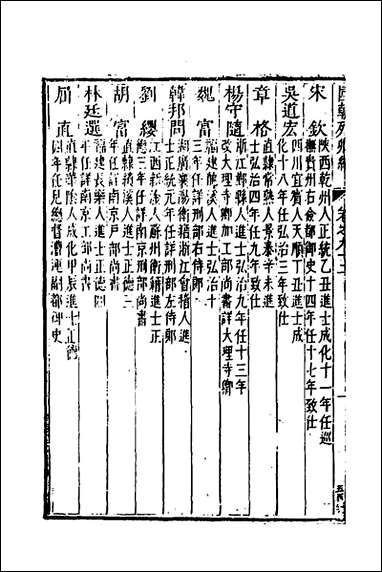 國朝列卿紀
宋欽
陜西乾州人正統乙丑進士成化十一年任巡
撫貴州右僉都御史十四年任十七年致仕
吳道宏
四川宜賓人天順丁丑進士成
化十八年任弘治三年致仕
章格
直隸常熟人景泰辛未進
士弘治四年任九年致仕
楊守隨
浙江鄞縣人進士弘治九年任十三年
改大理寺卿加工部尚書詳大理寺卿
魏富
福建龍溪人進士弘治十
三年任詳刑部右侍郎
韓邦問
湖廣襄陽衛籍浙江會稽人進
士正統元年任詳刑部左侍郎
劉纓
江西新淦人蘇州衛籍進士正
德三年任詳南京刑部尚書
胡富
直隸績溪人進士正德三
年任詳南京戶部尚書
林廷選
福建長樂人進士正德四
年任詳南京工部尚書
屈直
直隸華陰人成化甲辰進士正德
四年任見總督漕運副都御史